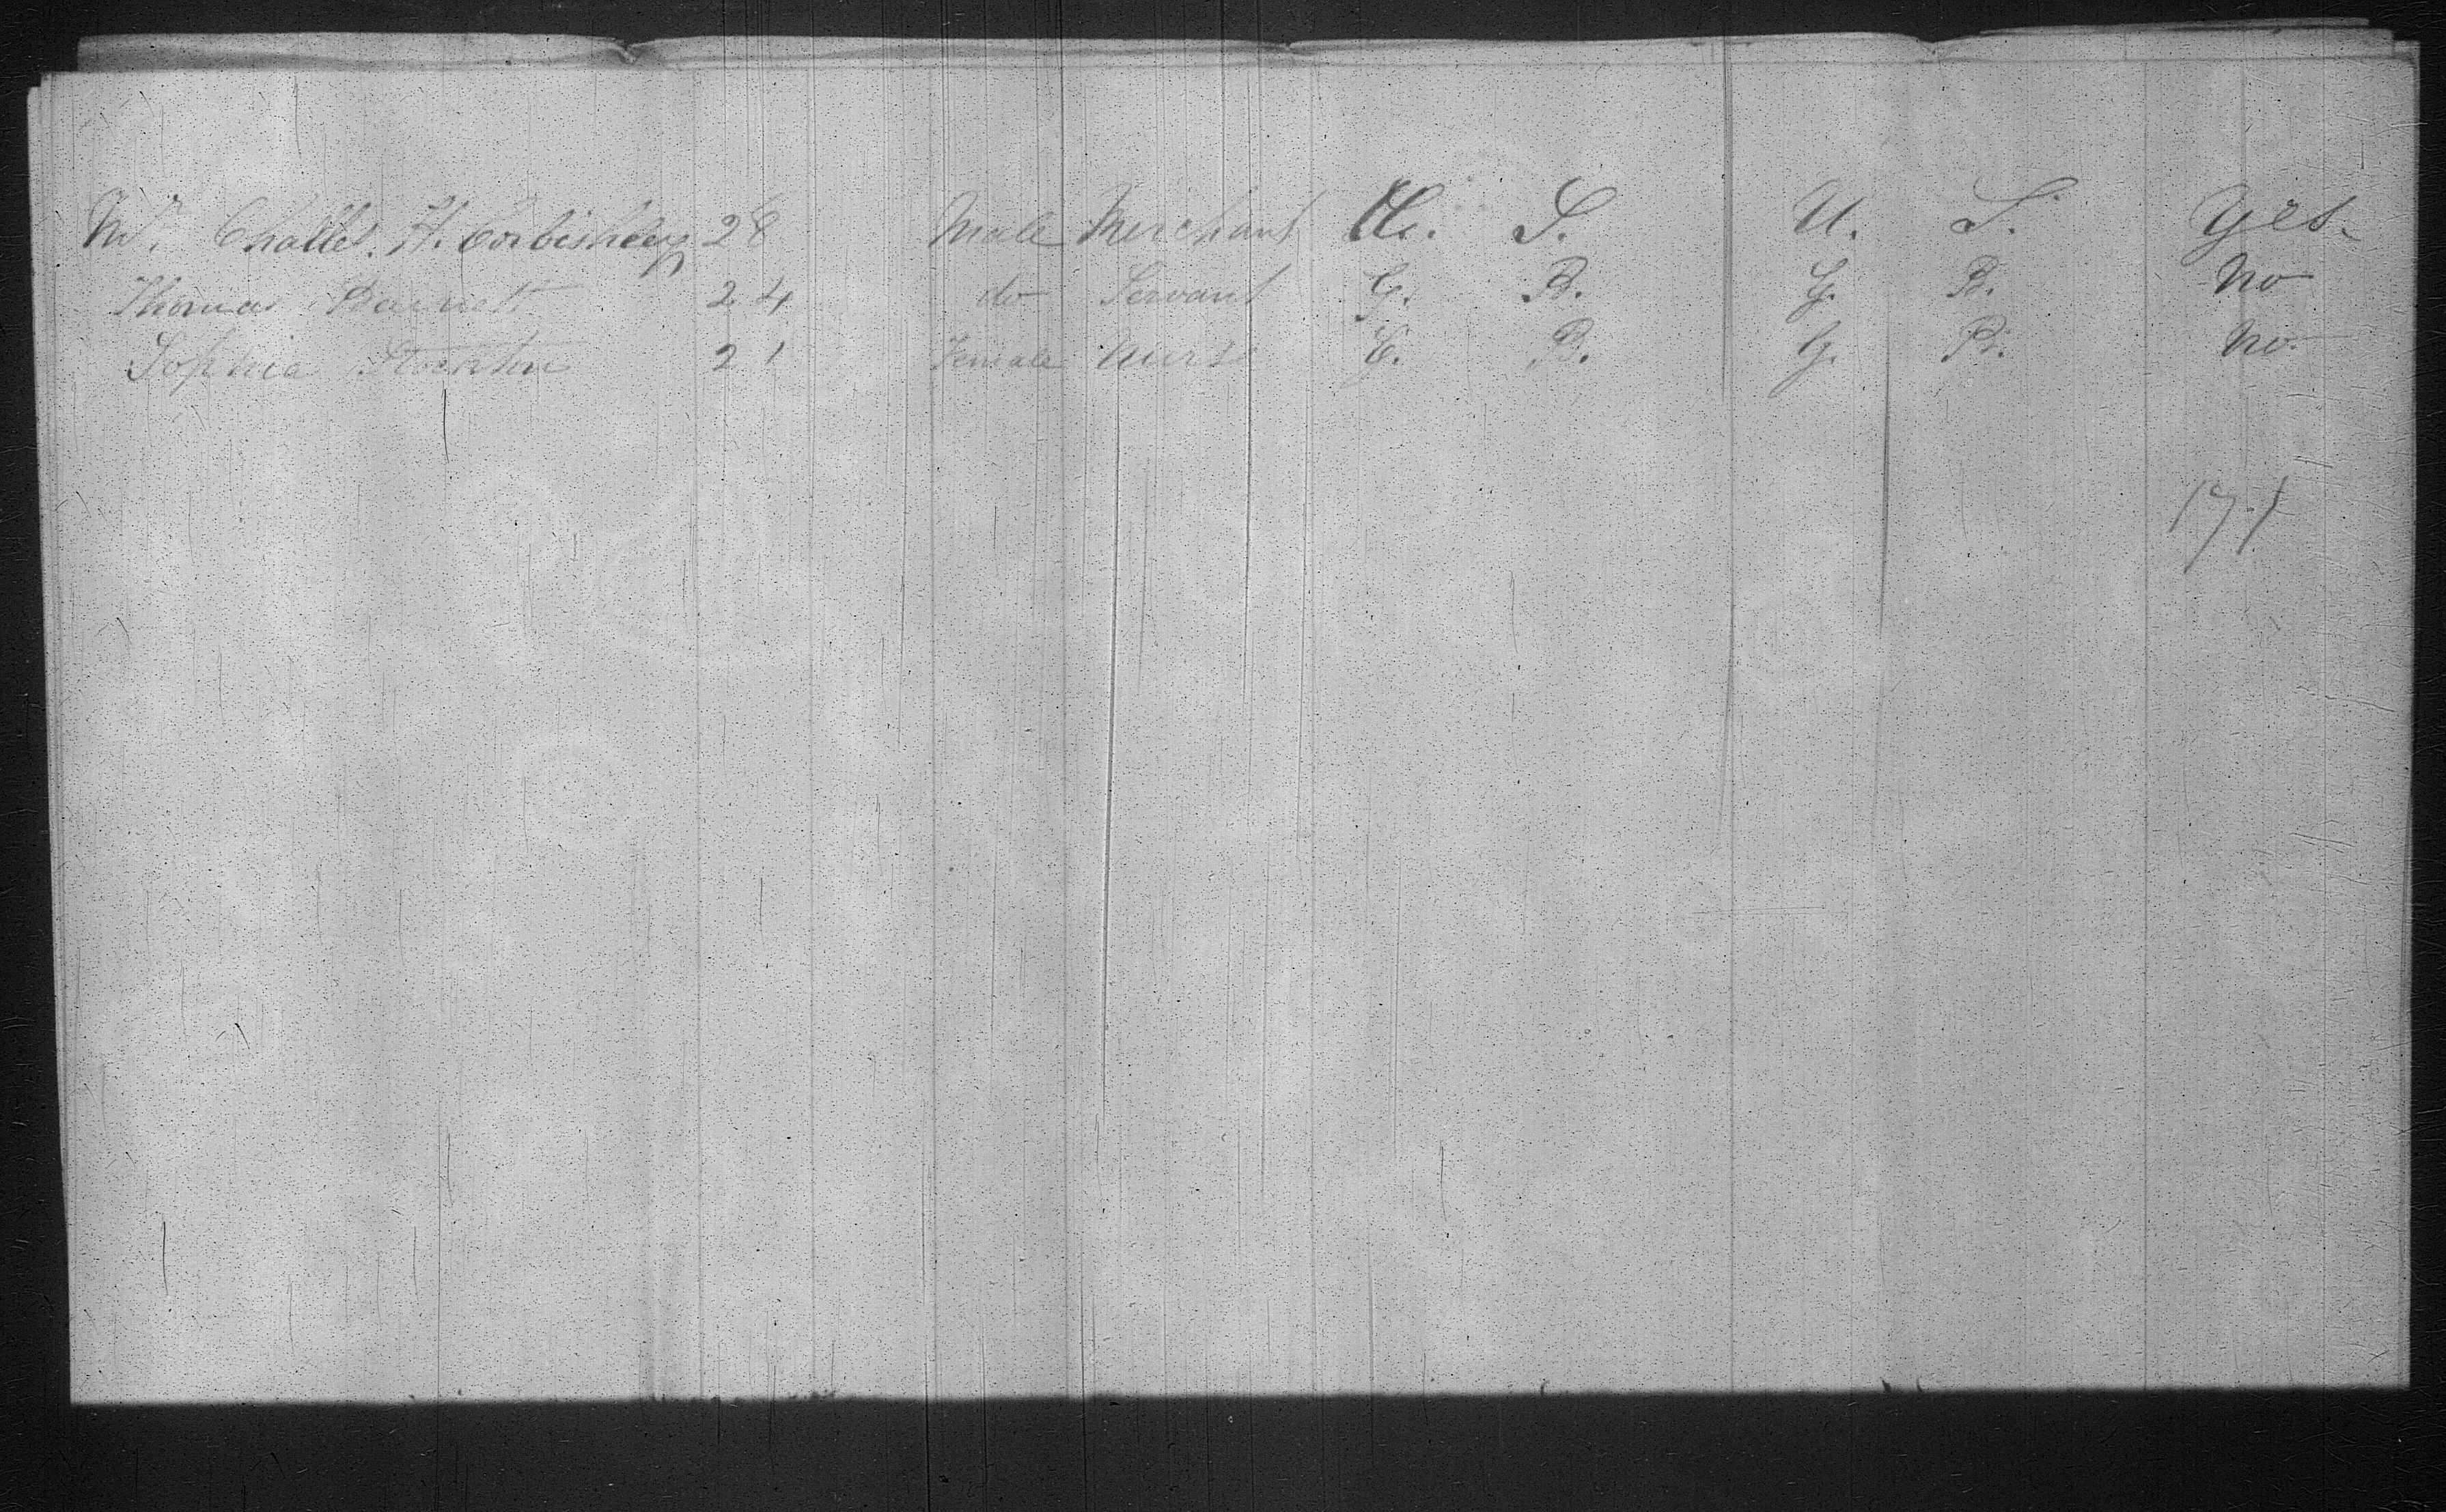 Mr. Challes. H. Corbishley 28 Male Merchant U. S. U. S. Yes.
Thomas Barnett 24 do Servant G. B. G. B. No
Sophia Stockton 21 Female Nurse G. B. G. B. No.
171